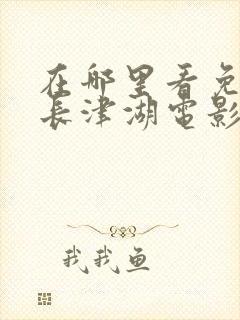 在哪里看免
长津湖电影
我我鱼